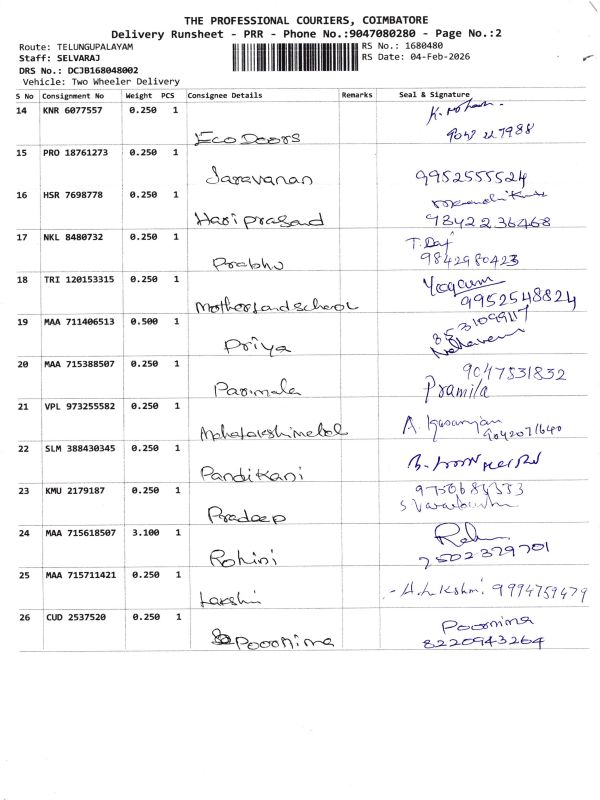 THE PROFESSIONAL COURIERS, COIMBATORE
Delivery Runsheet - PRR - Phone No.:9047080280 - Page No.:2
Route: TELUNGUPALAYAM
RS No.: 1680480
Staff: SELVARAJ
RS Date: 04-Feb-2026
DRS No.: DCJB168048002
Vehicle: Two Wheeler Delivery
S No Consignment No Weight PCS Consignee Details Remarks Seal & Signature
14 KNR 6077557 0.250 1
Eco Doors
15 PRO 18761273 0.250 1
Saravanan 9952555524
16 HSR 7698778 0.250 1
Hariprasand 9842236468
17 NKL 8480732 0.250 1 T.Daj
Prabhu 9842980423
18 TRI 120153315 0.250 1 Yogaum
Mothersandschool 9952548824
19 MAA 711406513 0.500 1 8531099117
Priya
20 MAA 715388507 0.250 1 9047531832
Parimala Pramila
21 VPL 973255582 0.250 1
Mahalakshimelol 9042071640
22 SLM 388430345 0.250 1
Pandikani
23 KMU 2179187 0.250 1 9750684333
Pradeep
24 MAA 715618507 3.100 1
Rohini 7502379701
25 MAA 715711421 0.250 1
Lakshi 9994759479
26 CUD 2537520 0.250 1 Poornima
Poornima 8220943264